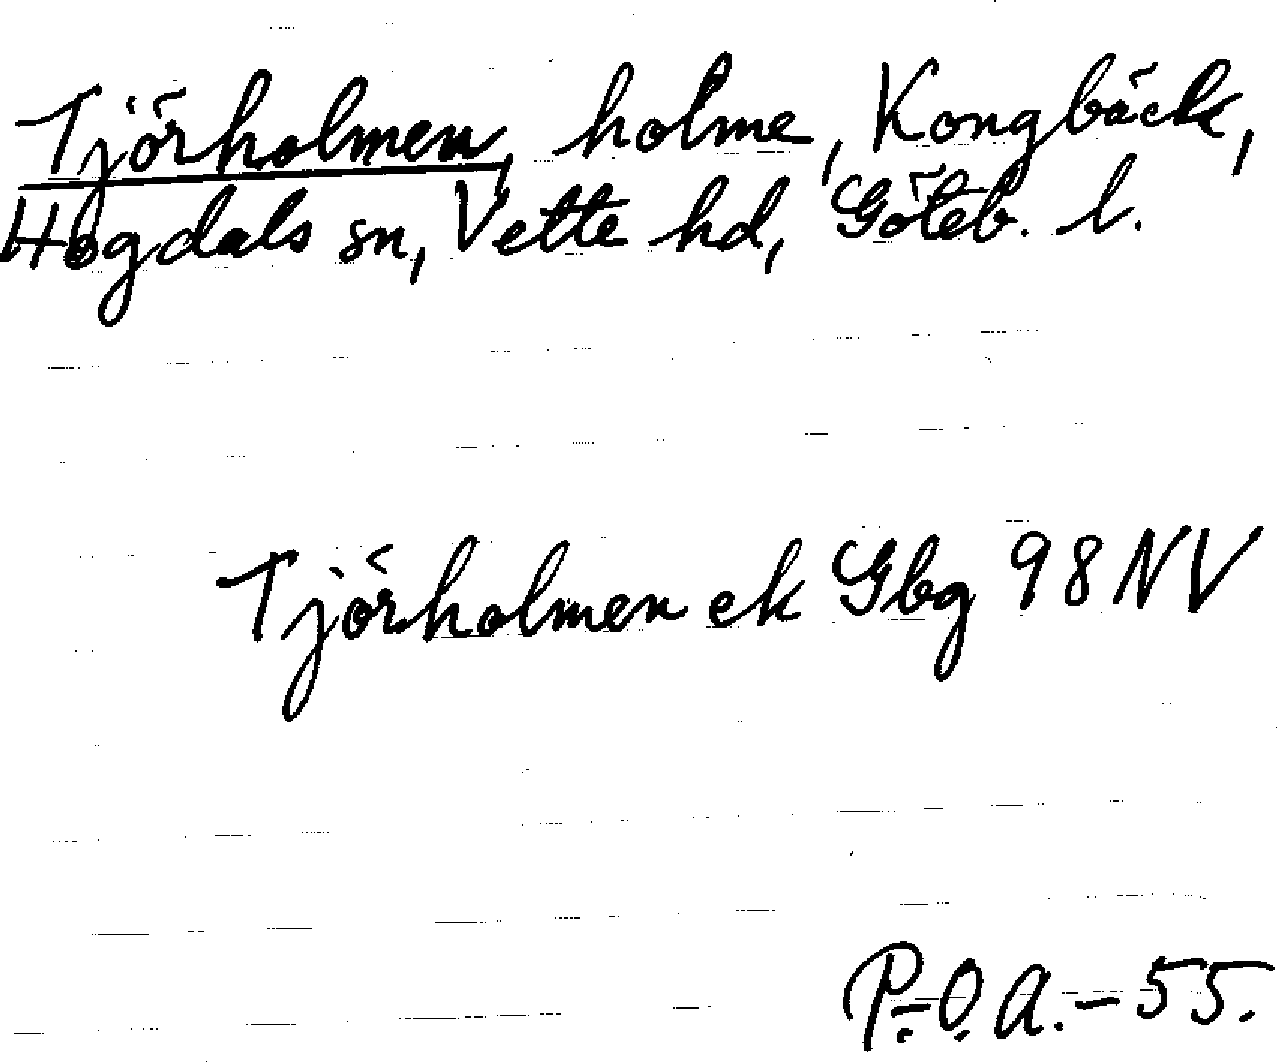 Tjörholmen, holme, Kongbäck,
Hogdals sn, Vette hd, Göteb. l.
Tjörholmen ek Gbg 98 NV
P.-O. A. - 55.